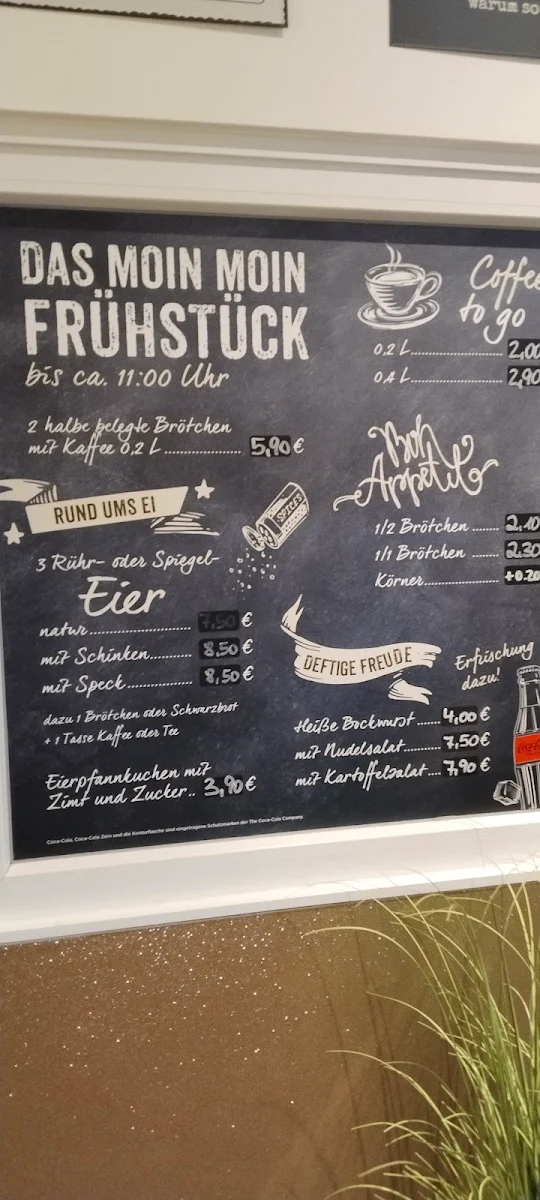 warum so
DAS MOIN MOIN
FRÜHSTÜCK
bis ca. 11:00 Uhr
2 halbe belegte Brötchen
mit Kaffee 0,2 L 5,90 €
RUND UMS EI
SPICES
3 Rühr- oder Spiegel-
Eier
natur 7,50 €
mit Schinken 8,50 €
mit Speck 8,50 €
dazu 1 Brötchen oder Schwarzbrot
+ 1 Tasse Kaffee oder Tee
Eierpfannkuchen mit
Zimt und Zucker.. 3,90 €
Coca-Cola, Coca-Cola Zero und die Konturflasche sind eingetragene Schutzmarken der The Coca-Cola Company.
Coffee
to go
0,2 L 2,00
0,4 L 2,90
Bon
Appétit
1/2 Brötchen 2,10
1/1 Brötchen 2.30
Körner +0.20
DEFTIGE FREUDE
Heiße Bockwurst 4,00 €
mit Nudelsalat 7,50 €
mit Kartoffelsalat 7,90 €
Erfrischung
dazu!